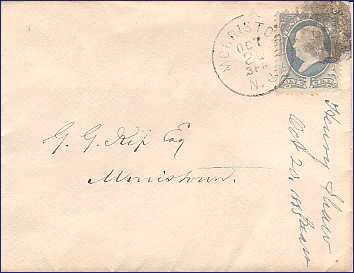 MORRISTOWN
OCT
3PM
N.J.
G. G. Kip Esq
Morristown.
Henry Shaw
Oct 24